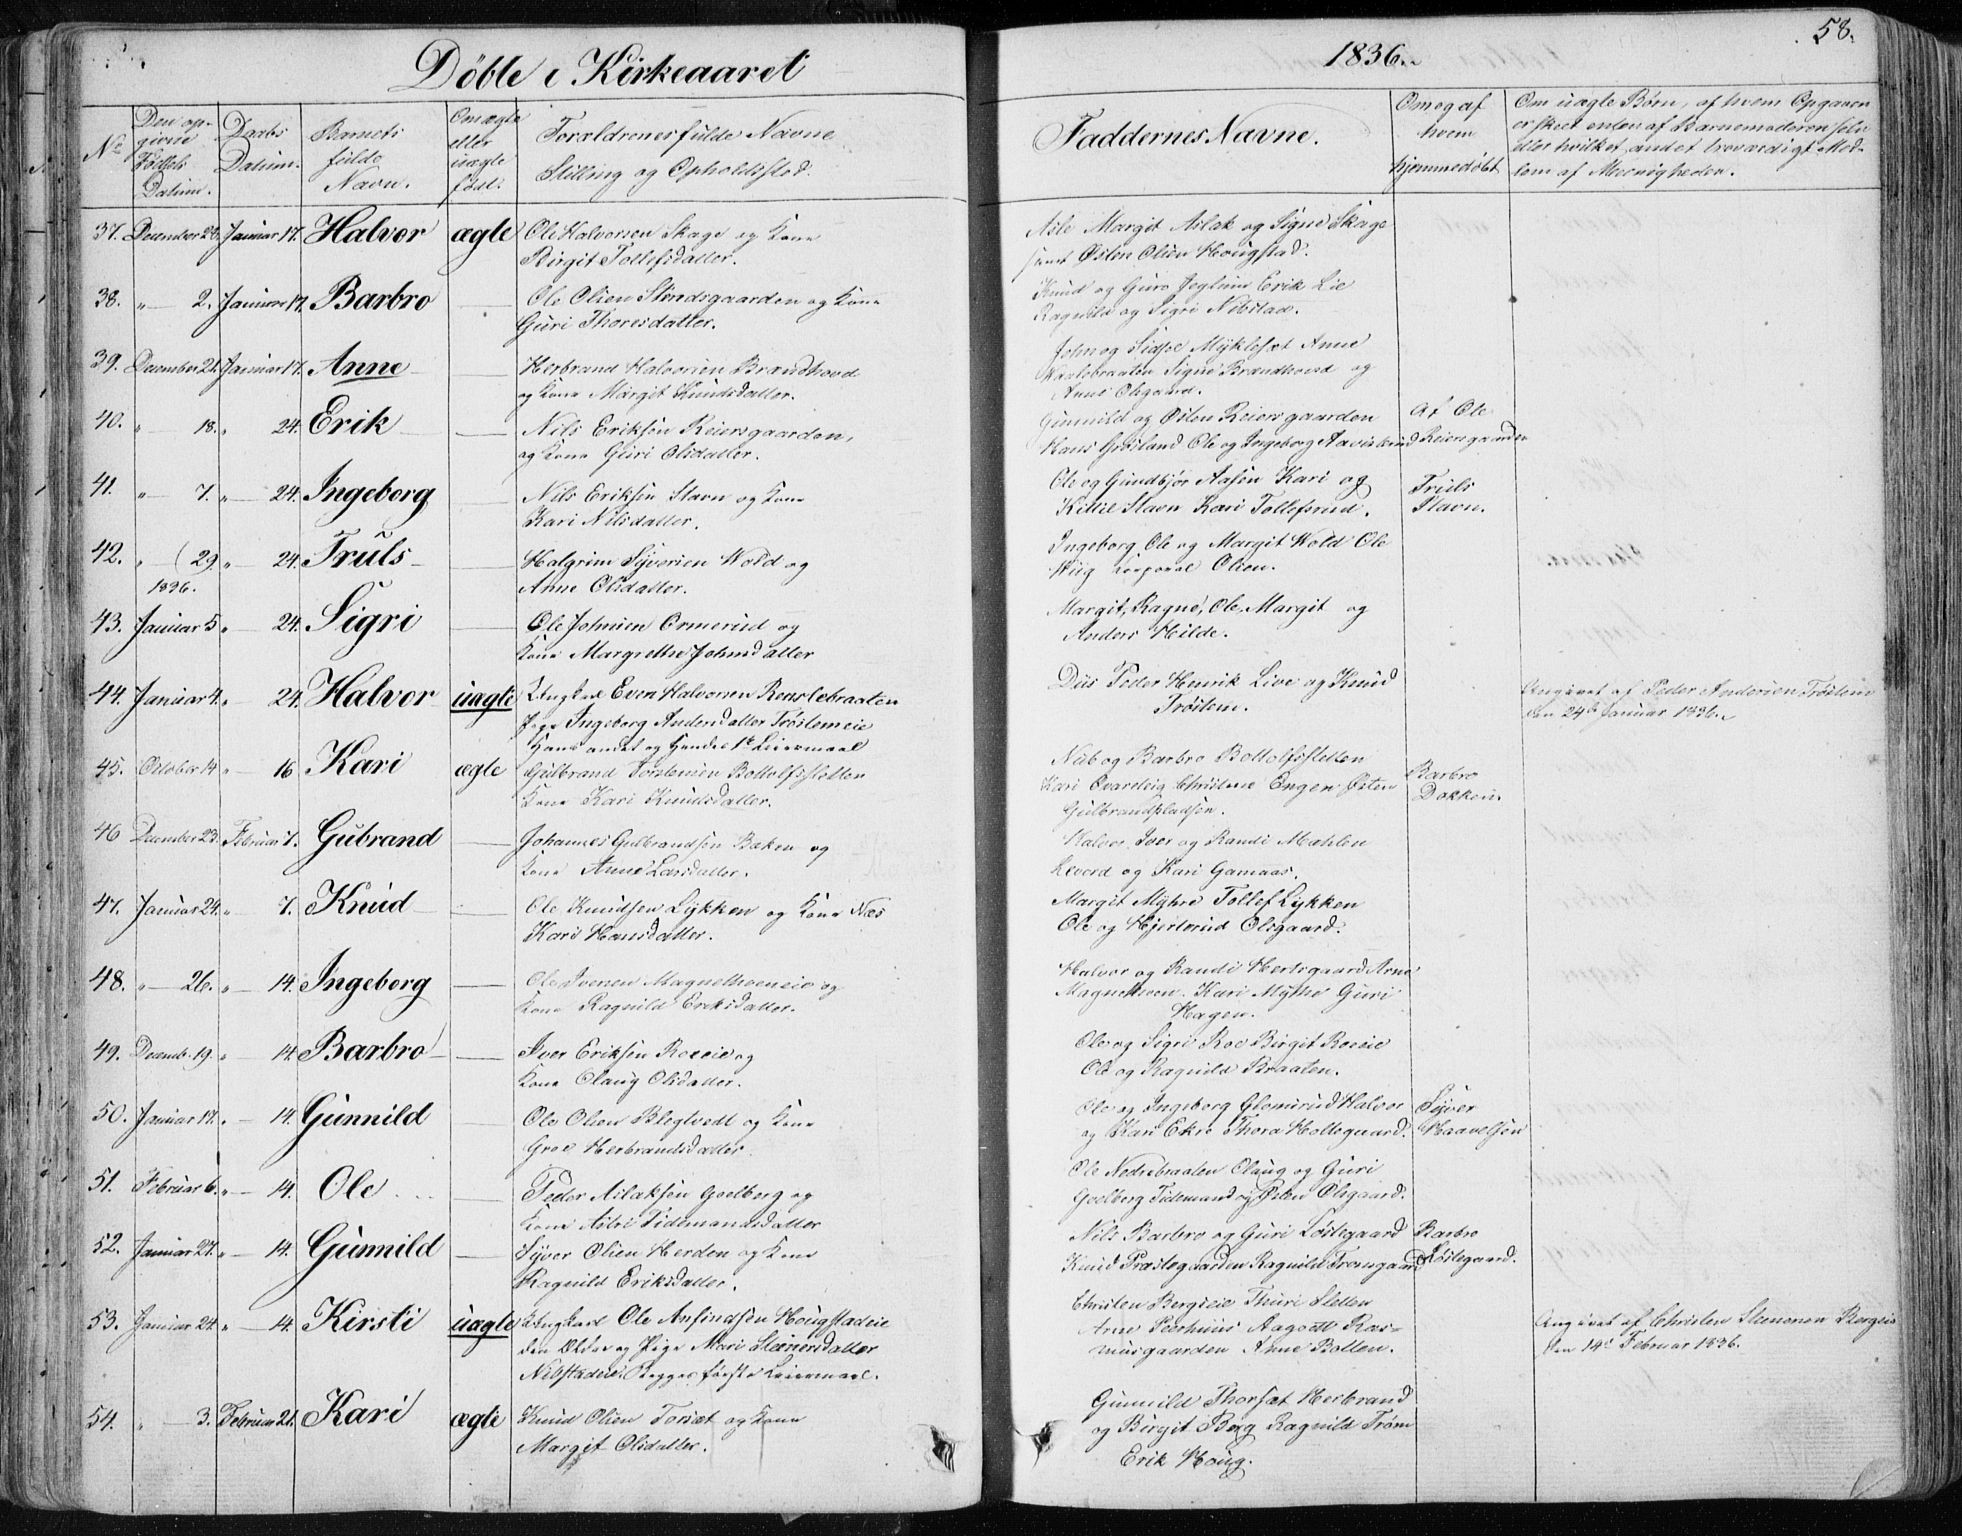 Döbte i Kirkeaaret
1836.
58.
No
Den op-
givne
Födsels
Datum.
Daabs
Datum.
Barnets
fulde
Navn.
Om ægte
eller
uægte
født.
Forældrenes fulde Navne
Stilling og Opholdssted.
Faddernes Navne.
Om og af
hvem
hjemmedöbt
Om uægte Børn, af hvem Opgaven
er skeet enten af Barnemoderen selv
eller hvilket andet troværdigt Med-
lem af Menigheden.
37. December 28. Januar 17. Halvor ægte Ole Halvorsen Skage og Kone
Birgit Tollefsdatter.
Asle Margit Aslak og Signe Skage
samt Østen Olsen Hougstad.
38. " 2. Januar 17. Barbro — Ole Olsen og Kone
Guri Thoresdatter.
Knud og Guro Erik Lie
Ragnild og Sigri Nibstad.
39. December 21. Januar 17. Anne — Herbrand Halvorsen Brændhovd
og Kone Margit Knudsdatter.
John og Sidsel Myklesæt Anne
Signe Brændhovd og
Anne Olsgaard.
40. " 18. " 24. Erik — Nils Eriksön Reiersgaarden,
og Kone Guri Olsdatter.
Gunnild og Østen Reiersgaarden
Hans Ole og Ingeborg
Af Ole
Reiersgaarden
41. " 7. " 24. Ingeborg — Nils Eriksön Stavn og Kone
Kari Nilsdatter.
Ole og Gundbjør Aasen Kari og
Kittil Stavn Kari Tollefsrud.
Truls
Stavn.
42. " 29. " 24. Truls — Halgrim Syversen Wold og
Anne Olsdatter.
Ingeborg, Ole og Margit Wold Ole
Wiig Korporal Olsen.
1836.
43. Januar 5 " 24. Sigri — Ole Johnsen Ormerud og
Kone Margrethe Johnsdatter
Margit, Ragne, Ole, Margit og
Anders Hilde.
44. Januar 4. " 24. Halvor uægte Ungkarl Even Halvorsen
Pige Ingeborg Andersdatter Trøstemeie
Hans andet og Hendes 1te Leiermaal
Peder Henrik Live og Knud
Trøstem.
Angivet af Peder Andersen Trøstem
den 24de Januar 1836.
45. October 14 " 16 Kari ægte Gulbrand Torstensen Bottolfsletten
Kone Kari Knudsdatter.
Nub og Barbro Bottolfsletten
Kari Christine Engen Østen
Gulbrandspladsen.
Barbro
Dokken.
46 December 23. Februar 7. Gubrand — Johannes Gulbrandsen Baken og
Kone Anne Larsdatter.
Halvor, Iver og Randi Mæhlen
Levord og Kari Gamaas.
47. Januar 24. " 7. Knud — Ole Knudsen Lykken og Kone Næs
Kari Hansdatter.
Margit Myhre Tollef Lykken
Ole og Hjertrud Olsgaard.
48. " 26. " 14. Ingeborg — Ole Iversen Magnethoeneie og
Kone Ragnild Eriksdatter.
Halvor og Randi Hertsgaard Arne
Magnethoen. Kari Myhre Guri
Hagen.
49. Decemb. 19. " 14. Barbro — Iver Eriksön Roeeie og
Kone Olaug Olsdatter.
Ole og Sigri Roe Birgit Roeeie
Ole og Ragnild Braaten.
50. Januar 17. " 14. Gunnild — Ole Olsen Blegtvedt og Kone
Groe Herbrandsdatter.
Ole og Ingeborg Glomsrud Halvor
og Kari Ekre Thora Holtegaard.
Syver
Haavelsön
51. Februar 6. " 14. Ole — Peder Aslaksön Goelberg og
Kone Astri Tidemandsdatter
Ole Nedrebraaten Olaug og Guri
Goelberg Tidemand og Østen Olsgaard.
52. Januar 27. " 14. Gunnild — Syver Olsen Herden og Kone
Ragnild Eriksdatter.
Nils Barbro og Guri Løstegaard
Knud Præstegaarden Ragnild Tromsgaard
Barbro
Løstegaard.
53. Januar 24. " 14. Kirsti uægte Ungkarl Ole Anfindsön Hougstadeie
den Ældre og Pige Mari Steinersdatter
Nibstadeie. Begges første Leiermaal.
Christen Bergseie Thuri Sletten
Arne Peerhuus Aagott Ras-
musgaarden Anne Bolten.
Angivet af Christen Steenersen Bergeie
den 14de Februar 1836.
54. " 3. Februar 21. Kari ægte Knud Olsen Torsæt og Kone
Margit Olsdatter.
Gunnild Thorsæt Herbrand
og Birgit Berg Ragnild Trøm
Erik Houg.